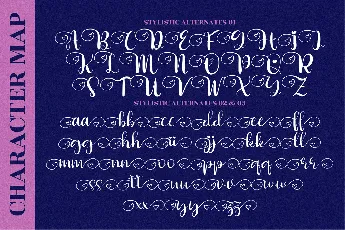 CHARACTER MAP
STYLISTIC ALTERNATES 01
A B C D E F G H I J
K L M N O P Q R
S T U V W X Y Z
STYLISTIC ALTERNATES 02 & 03
aa bb cc dd ee ff
gg hh ii jj kk ll
mm nn oo pp qq rr
ss tt uu vv ww
xx yy zz